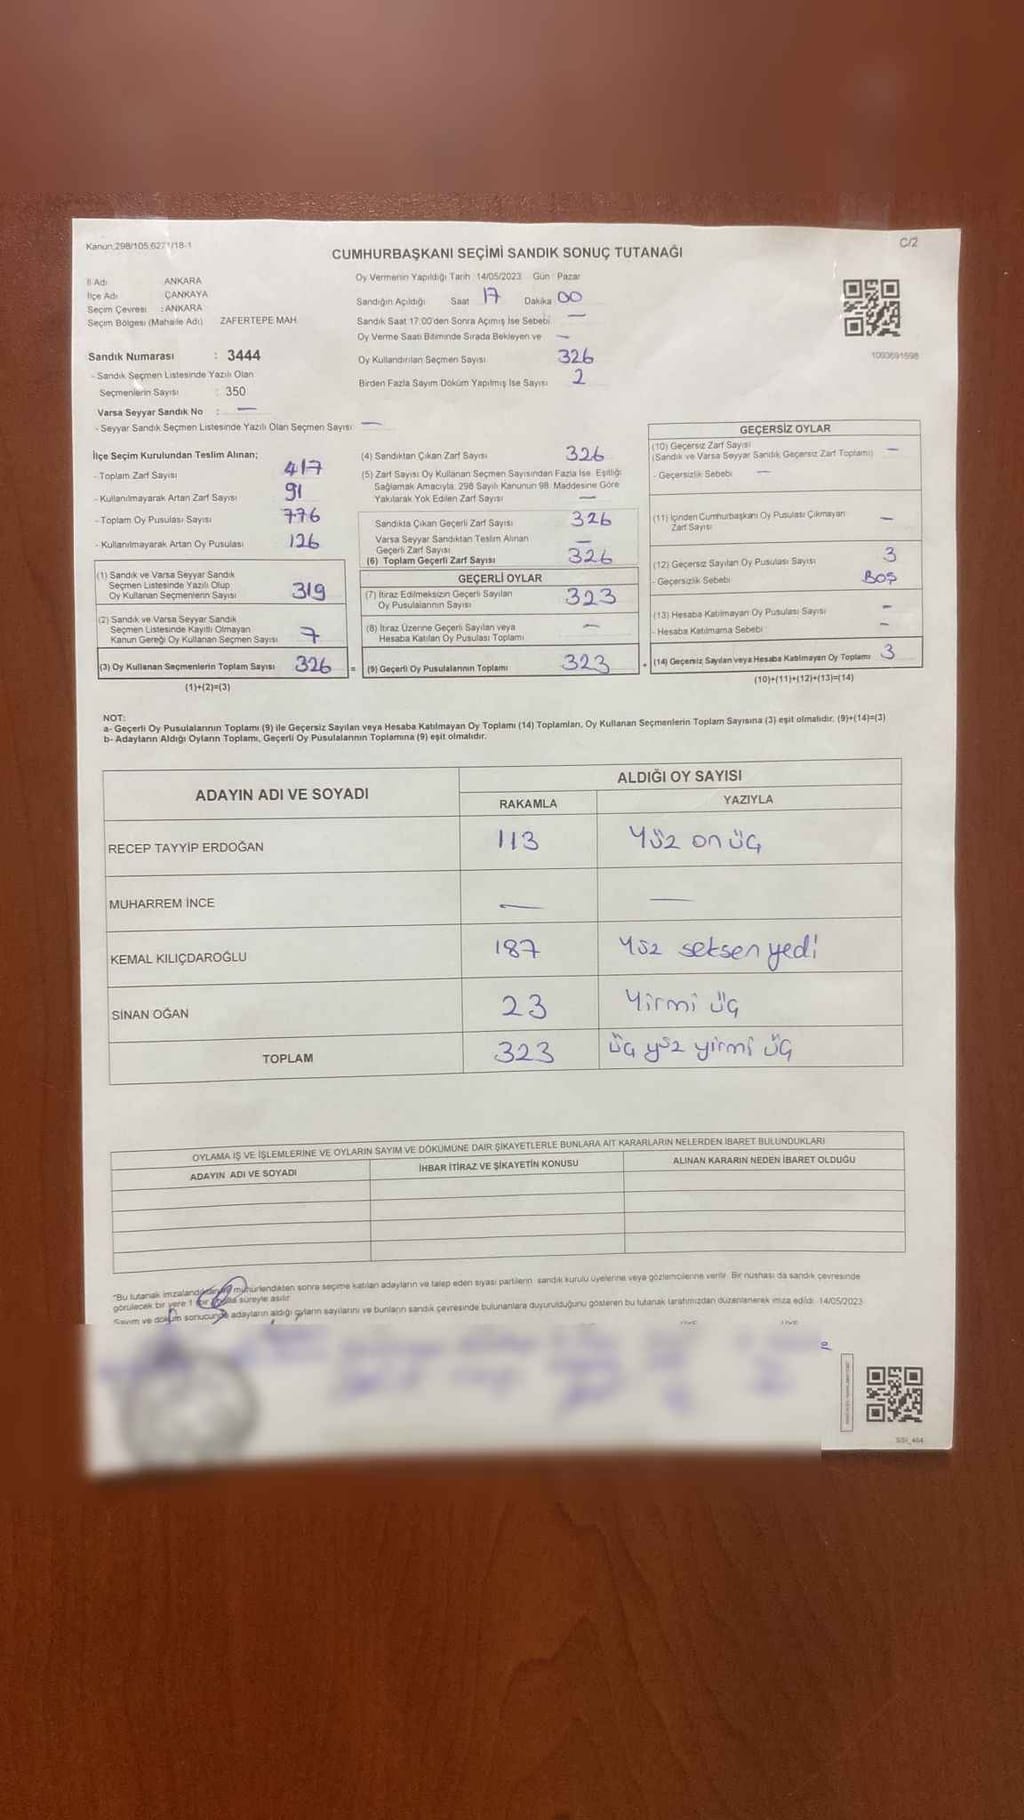 Kanun;298/105,6271/18-1
C/2
CUMHURBAŞKANI SEÇİMİ SANDIK SONUÇ TUTANAĞI
İl Adı ANKARA
İlçe Adı ÇANKAYA
Seçim Çevresi : ANKARA
Seçim Bölgesi (Mahalle Adı) ZAFERTEPE MAH.
Sandık Numarası : 3444
- Sandık Seçmen Listesinde Yazılı Olan
Seçmenlerin Sayısı : 350
Varsa Seyyar Sandık No : —
- Seyyar Sandık Seçmen Listesinde Yazılı Olan Seçmen Sayısı —
Oy Vermenin Yapıldığı Tarih : 14/05/2023 Gün : Pazar
Sandığın Açıldığı Saat 17 Dakika 00
Sandık Saat 17:00'den Sonra Açılmış İse Sebebi —
Oy Verme Saati Bitiminde Sırada Bekleyen ve —
Oy Kullandırılan Seçmen Sayısı 326
Birden Fazla Sayım Döküm Yapılmış İse Sayısı 2
1093691698
İlçe Seçim Kurulundan Teslim Alınan;
- Toplam Zarf Sayısı 417
- Kullanılmayarak Artan Zarf Sayısı 91
- Toplam Oy Pusulası Sayısı 776
- Kullanılmayarak Artan Oy Pusulası 126
(1) Sandık ve Varsa Seyyar Sandık
Seçmen Listesinde Yazılı Olup
Oy Kullanan Seçmenlerin Sayısı 319
(2) Sandık ve Varsa Seyyar Sandık
Seçmen Listesinde Kayıtlı Olmayan
Kanun Gereği Oy Kullanan Seçmen Sayısı 7
(3) Oy Kullanan Seçmenlerin Toplam Sayısı 326 =
(1)+(2)=(3)
(4) Sandıktan Çıkan Zarf Sayısı 326
(5) Zarf Sayısı Oy Kullanan Seçmen Sayısından Fazla İse, Eşitliği
Sağlamak Amacıyla, 298 Sayılı Kanunun 98. Maddesine Göre
Yakılarak Yok Edilen Zarf Sayısı —
Sandıkta Çıkan Geçerli Zarf Sayısı 326
Varsa Seyyar Sandıktan Teslim Alınan
Geçerli Zarf Sayısı —
(6) Toplam Geçerli Zarf Sayısı 326
GEÇERLİ OYLAR
(7) İtiraz Edilmeksizin Geçerli Sayılan
Oy Pusulalarının Sayısı 323
(8) İtiraz Üzerine Geçerli Sayılan veya
Hesaba Katılan Oy Pusulası Toplamı —
(9) Geçerli Oy Pusulalarının Toplamı 323 +
GEÇERSİZ OYLAR
(10) Geçersiz Zarf Sayısı —
(Sandık ve Varsa Seyyar Sandık Geçersiz Zarf Toplamı)
- Geçersizlik Sebebi —
(11) İçinden Cumhurbaşkanı Oy Pusulası Çıkmayan
Zarf Sayısı —
(12) Geçersiz Sayılan Oy Pusulası Sayısı 3
- Geçersizlik Sebebi BOŞ
(13) Hesaba Katılmayan Oy Pusulası Sayısı —
- Hesaba Katılmama Sebebi —
(14) Geçersiz Sayılan veya Hesaba Katılmayan Oy Toplamı 3
(10)+(11)+(12)+(13)=(14)
NOT:
a- Geçerli Oy Pusulalarının Toplamı (9) ile Geçersiz Sayılan veya Hesaba Katılmayan Oy Toplamı (14) Toplamları, Oy Kullanan Seçmenlerin Toplam Sayısına (3) eşit olmalıdır. (9)+(14)=(3)
b- Adayların Aldığı Oyların Toplamı, Geçerli Oy Pusulalarının Toplamına (9) eşit olmalıdır.
ADAYIN ADI VE SOYADI ALDIĞI OY SAYISI
RAKAMLA YAZIYLA
RECEP TAYYİP ERDOĞAN 113 Yüz on üç
MUHARREM İNCE — —
KEMAL KILIÇDAROĞLU 187 Yüz seksen yedi
SİNAN OĞAN 23 Yirmi üç
TOPLAM 323 üç yüz yirmi üç
OYLAMA İŞ VE İŞLEMLERİNE VE OYLARIN SAYIM VE DÖKÜMÜNE DAİR ŞİKAYETLERLE BUNLARA AİT KARARLARIN NELERDEN İBARET BULUNDUKLARI
ADAYIN ADI VE SOYADI İHBAR İTİRAZ VE ŞİKAYETİN KONUSU ALINAN KARARIN NEDEN İBARET OLDUĞU
*Bu tutanak mühürlendikten sonra seçime katılan adayların ve talep eden siyasi partilerin sandık kurulu üyelerine veya gözlemcilerine verilir. Bir nüshası da sandık çevresinde
görülecek bir yere 1 süreyle asılır.
Sayım ve döküm sonucunda adayların aldığı oyların sayılarını ve bunların sandık çevresinde bulunanlara duyurulduğunu gösteren bu tutanak tarafımızdan düzenlenerek imza edildi. 14/05/2023